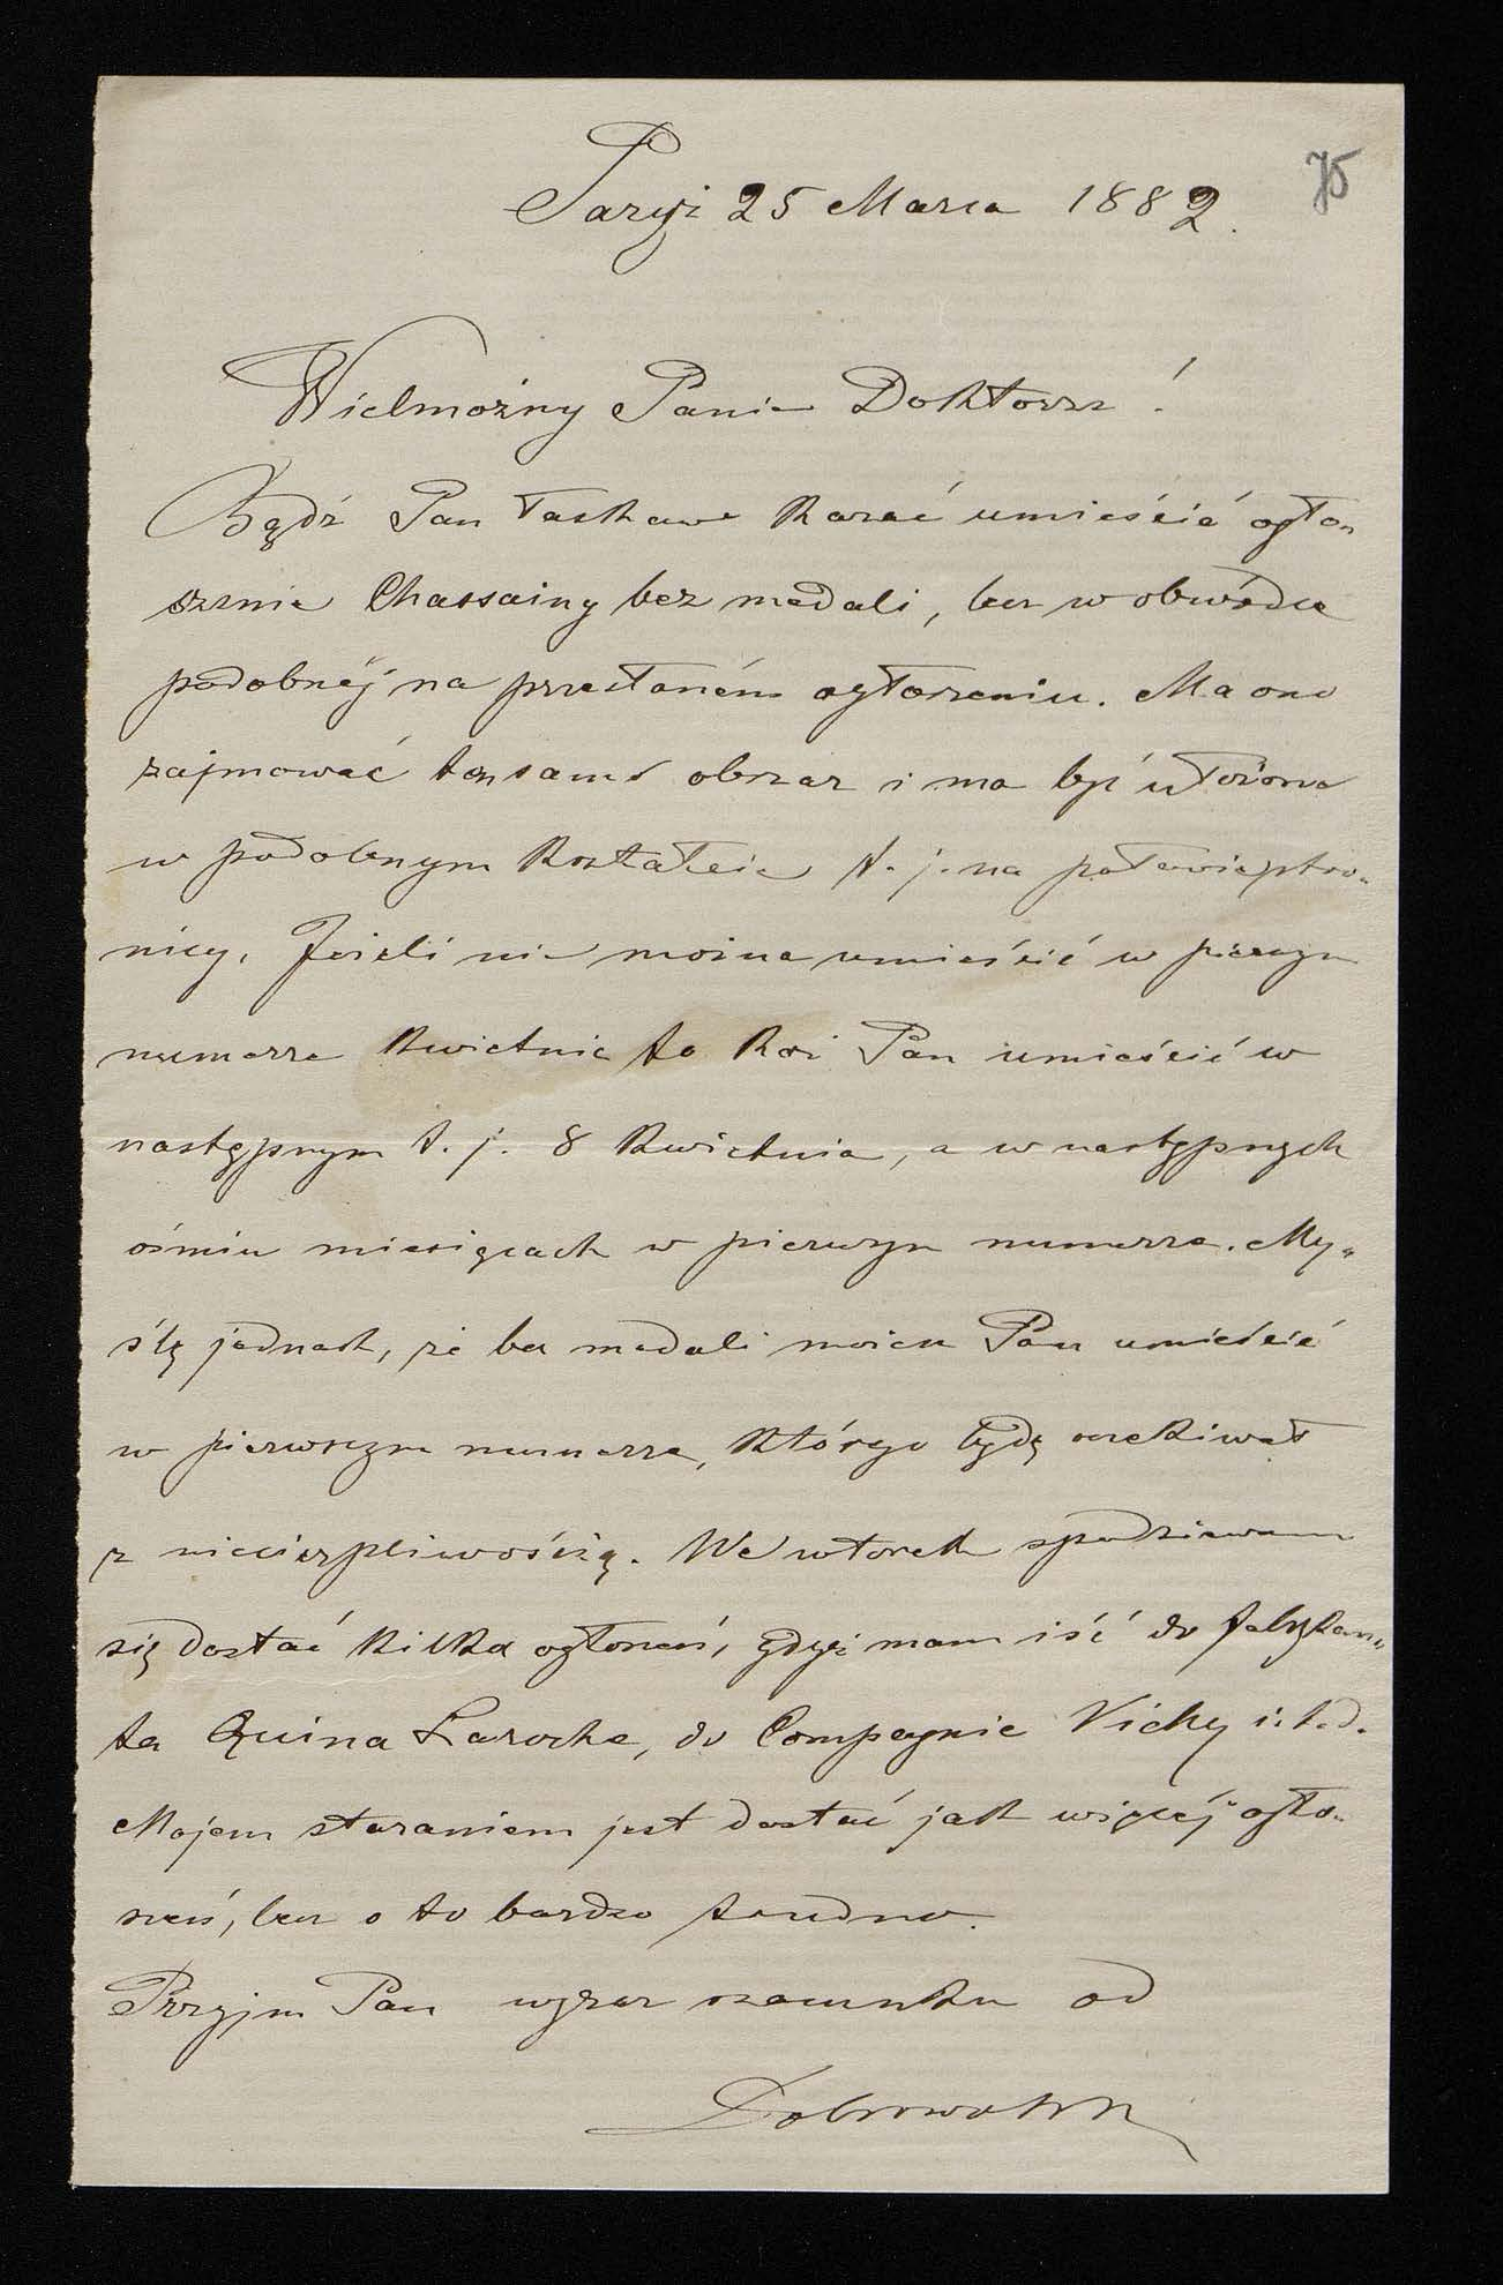 75
Paryż 25 Marca 1882.
Wielmożny Panie Doktorze!
Bądź Pan łaskawe kazać umieścić ogło„
szenie Chassaing bez medali, lecz w obwódce
podobnéj na przesłaném ogłoszeniu. Ma ono
zajmować ten sam obszar i ma być ułożone
w podobnym kształcie t. j. na połowie stro„
nicy. Jeżeli nie można umieścić w pierwszym
numerze kwietnia to każ Pan umieścić w
następnym t. j. 8 kwietnia, a w następnych
ośmiu miesiącach w pierwszym numerze. My„
ślę jednak, że bez medali możesz Pan umieścić
w pierwszym numerze, którego będę oczekiwał
z niecierpliwością. We wtorek spodziewam
się dostać kilka ogłoszeń, gdyż mam iść do fabrykan„
ta Quina Laroche, do Compagnie Vichy i t. d.
Mojem staraniem jest dostać jak więcéj ogło„
szeń, lecz o to bardzo trudno.
Przyjm Pan wyraz szacunku od
Dobrowolski